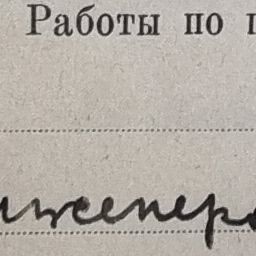 Работы по п
инженерo